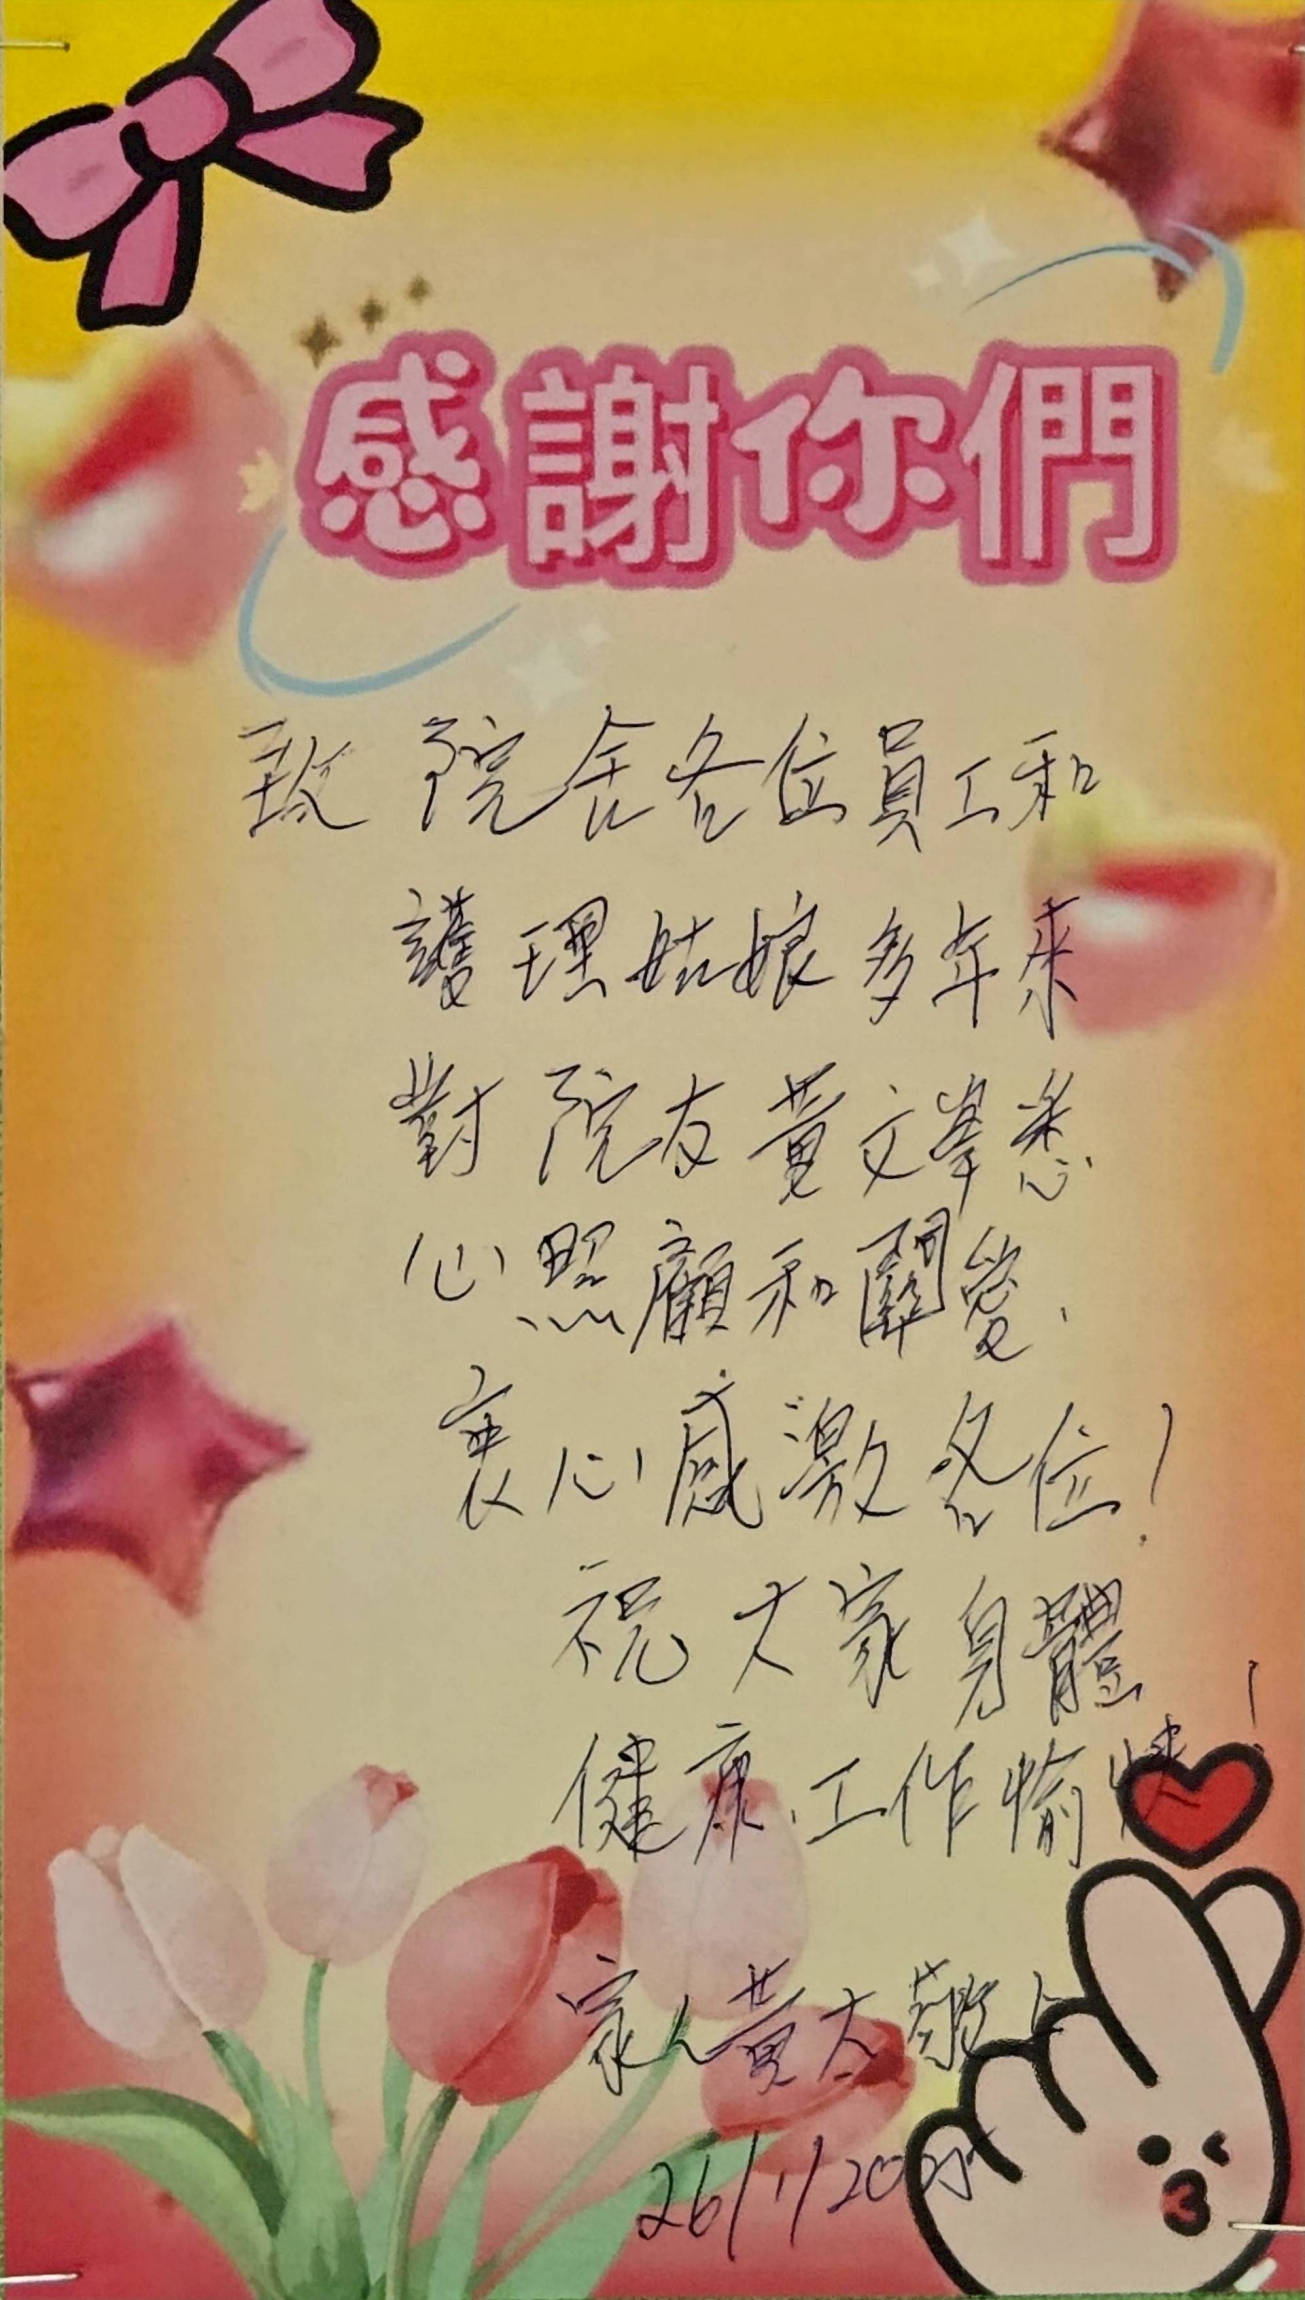 感謝你們
致 院舍各位員工和
護理姑娘多年來
對院友黃文峯悉
心照顧和關愛、
衷心感激各位！
祝大家身體
健康、工作愉快！
家人黃太敬上
26/1/20